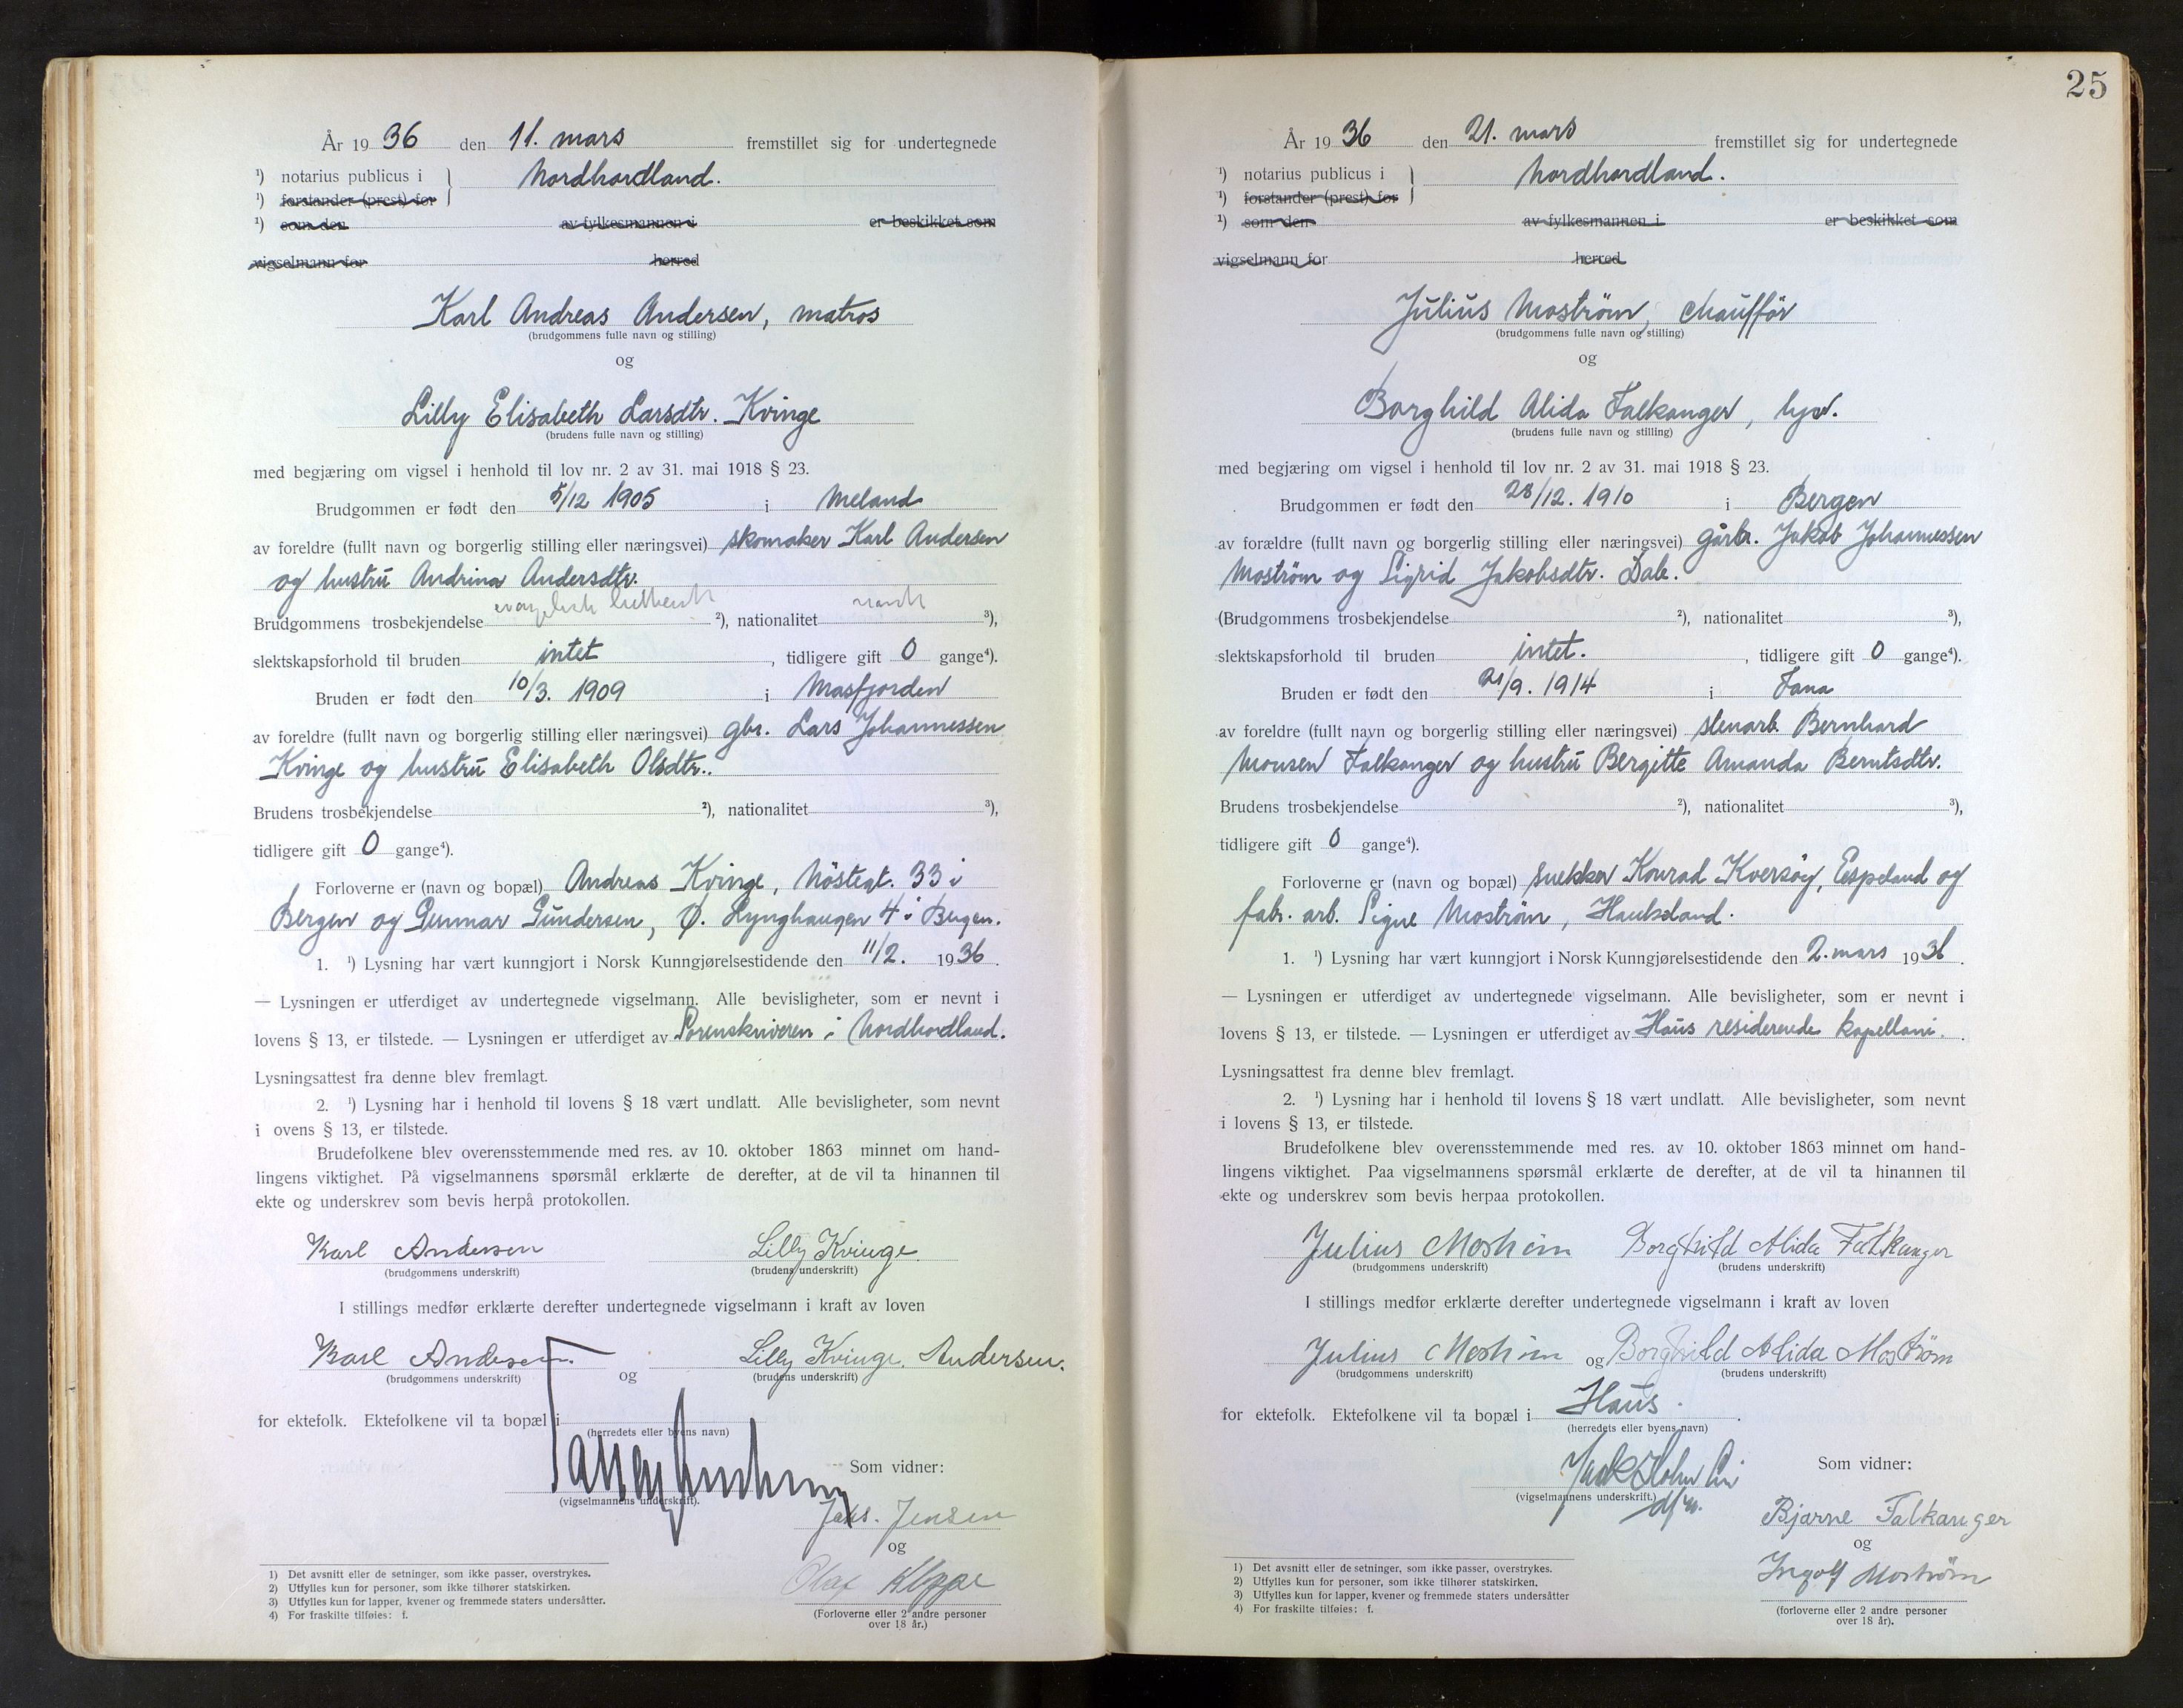 År 19 36 den 11. mars fremstillet sig for undertegnede
¹) notarius publicus i } Nordhordland.
¹) forstander (prest) for
¹) som den av fylkesmannen i er beskikket som
vigselmann for herred
Karl Andreas Andersen, matros
(brudgommens fulle navn og stilling)
og
Lilly Elisabeth Larsdtr. Kvinge
(brudens fulle navn og stilling)
med begjæring om vigsel i henhold til lov nr. 2 av 31. mai 1918 § 23.
Brudgommen er født den 5/12 1905 i Meland
av foreldre (fullt navn og borgerlig stilling eller næringsvei) skomaker Karl Andersen
og hustru Andrina Andersdtr.
Brudgommens trosbekjendelse evangelisk luthersk ²), nationalitet norsk ³),
slektskapsforhold til bruden intet , tidligere gift 0 gange⁴).
Bruden er født den 10/3. 1909 i Masfjorden
av foreldre (fullt navn og borgerlig stilling eller næringsvei) gbr. Lars Johannessen
Kvinge og hustru Elisabeth Olsdtr..
Brudens trosbekjendelse ²), nationalitet ³),
tidligere gift 0 gange⁴).
Forloverne er (navn og bopæl) Andreas Kvinge, Nöstegt. 33 i
Bergen og Gunnar Gundersen, Ø. Lynghaugen 4 i Bergen.
1. ¹) Lysning har vært kunngjort i Norsk Kunngjørelsestidende den 11/2. 1936.
— Lysningen er utferdiget av undertegnede vigselmann. Alle bevisligheter, som er nevnt i
lovens § 13, er tilstede. — Lysningen er utferdiget av Sorenskriveren i Nordhordland.
Lysningsattest fra denne blev fremlagt.
2. ¹) Lysning har i henhold til lovens § 18 vært undlatt. Alle bevisligheter, som nevnt
i ovens § 13, er tilstede.
Brudefolkene blev overensstemmende med res. av 10. oktober 1863 minnet om hand-
lingens viktighet. På vigselmannens spørsmål erklærte de derefter, at de vil ta hinannen til
ekte og underskrev som bevis herpå protokollen.
Karl Andersen Lilly Kvinge
(brudgommens underskrift) (brudens underskrift)
I stillings medfør erklærte derefter undertegnede vigselmann i kraft av loven
Karl Andersen. og Lilly Kvinge. Andersen.
(brudgommens underskrift) (brudens underskrift)
for ektefolk. Ektefolkene vil ta bopæl i
(herredets eller byens navn)
Som vidner:
(vigselmannens underskrift).
Jahs. Jensen
og
Olaf Kloppe
(Forloverne eller 2 andre personer
over 18 år.)
1) Det avsnitt eller de setninger, som ikke passer, overstrykes.
2) Utfylles kun for personer, som ikke tilhører statskirken.
3) Utfylles kun for lapper, kvener og fremmede staters undersåtter.
4) For fraskilte tilføies: f.
25
År 19 36 den 21. mars fremstillet sig for undertegnede
¹) notarius publicus i } Nordhordland.
¹) forstander (prest) for
¹) som den av fylkesmannen i er beskikket som
vigselmann for herred
Julius Moström, chauffør
(brudgommens fulle navn og stilling)
og
Borghild Alida Falkanger, hjv.
(brudens fulle navn og stilling)
med begjæring om vigsel i henhold til lov nr. 2 av 31. mai 1918 § 23.
Brudgommen er født den 28/12. 1910 i Bergen
av forældre (fullt navn og borgerlig stilling eller næringsvei) gårbr. Jakob Johannessen
Moström og Sigrid Jakobsdtr. Dale.
(Brudgommens trosbekjendelse ²), nationalitet ³),
slektskapsforhold til bruden intet. , tidligere gift 0 gange⁴).
Bruden er født den 21/9. 1914 i Fana
av foreldre (fullt navn og borgerlig stilling eller næringsvei) stenarb. Bernhard
Monsen Falkanger og hustru Bergitte Amanda Berntsdtr.
Brudens trosbekjendelse ²), nationalitet ³),
tidligere gift 0 gange⁴).
Forloverne er (navn og bopæl) snekker Konrad Kversöy, Espeland og
fabr. arb. Signe Moström, Haukeland.
1. ¹) Lysning har vært kunngjort i Norsk Kunngjørelsestidende den 2. mars 1936.
— Lysningen er utferdiget av undertegnede vigselmann. Alle bevisligheter, som er nevnt i
lovens § 13, er tilstede. — Lysningen er utferdiget av Haus residerende kapellani.
Lysningsattest fra denne blev fremlagt.
2. ¹) Lysning har i henhold til lovens § 18 vært undlatt. Alle bevisligheter, som nevnt
i lovens § 13, er tilstede.
Brudefolkene blev overensstemmende med res. av 10. oktober 1863 minnet om hand-
lingens viktighet. Paa vigselmannens spørsmål erklærte de derefter, at de vil ta hinannen til
ekte og underskrev som bevis herpaa protokollen.
Julius Moström Borghild Alida Falkanger
(brudgommens underskrift) (brudens underskrift)
I stillings medfør erklærte derefter undertegnede vigselmann i kraft av loven
Julius Moström og Borghild Alida Moström
(brudgommens underskrift) (brudens underskrift)
for ektefolk. Ektefolkene vil ta bopæl i Haus.
(herredets eller byens navn)
Som vidner:
(vigselmannens underskrift.)
dfm.
Bjarne Falkanger
og
Ingolf Moström
(forloverne eller 2 andre personer
over 18 år).
1) Det avsnitt eller de setninger, som ikke passer, overstrykes.
2) Utfylles kun for personer, som ikke tilhører statskirken.
3) Utfylles kun for lapper, kvener og fremmede staters undersåtter
4) For fraskilte tilføies: f.